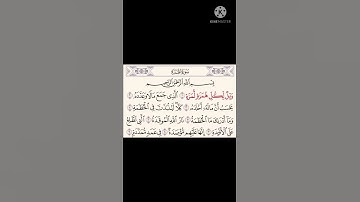 سورة الهمزة
بسم الله الرحمن الرحيم
ويل لكل همزة لمزة ۝ الذي جمع مالا وعدده ۝
يحسب أن ماله أخلده ۝ كلا لينبذن في الحطمة ۝
وما أدراك ما الحطمة ۝ نار الله الموقدة ۝ التي تطلع
على الأفئدة ۝ إنها عليهم مؤصدة ۝ في عمد ممددة ۝